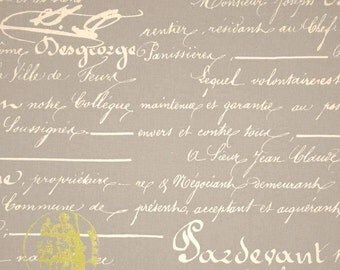 Monsieur Joseph
rentier, résidant au Chef
Desgeorge Panissières,
Ville de Feurs Lequel volontairement
notre Collègue maintenue et garantie au
Soussignés envers et contre tous,
A Sieur Jean Claude
propriétaire re & Négociant demeurant
Commune de présent, acceptant et aiquerant
Pardevant